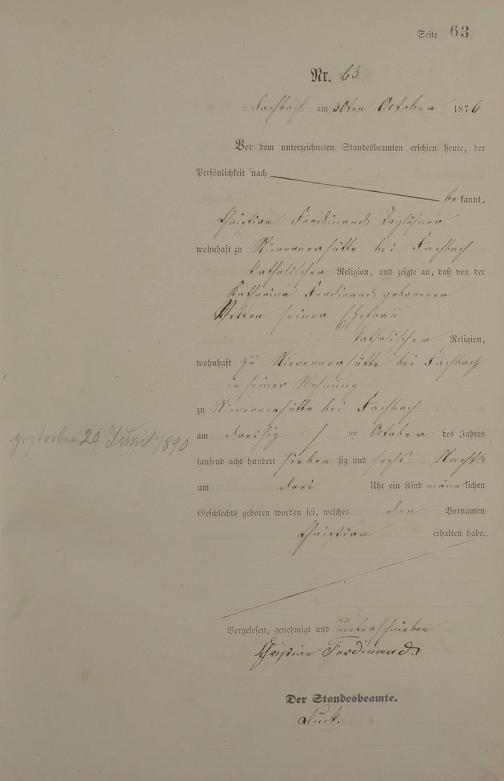 Seite 63
Nr. 63
Fachbach am 30ten October 1876
Vor dem unterzeichneten Standesbeamten erschien heute, der
Persönlichkeit nach
bekannt,
Christian Ferdinand Taglöhner
wohnhaft zu Nievernerhütte bei Fachbach
katholischer Religion, und zeigte an, daß von der
Katharina Ferdinand geborenen
seiner Ehefrau
katholischer Religion,
wohnhaft zu Nievernerhütte bei Fachbach
in seiner Wohnung
zu Nievernerhütte bei Fachbach
am October des Jahres
gestorben 20 Juni 1890
tausend acht hundert siebenzig und sechs Nachts
um drei Uhr ein Kind männlichen
Geschlechts geboren worden sei, welches den Vornamen
Christian erhalten habe.
Vorgelesen, genehmigt und unterschrieben
Christian Ferdinand
Der Standesbeamte.